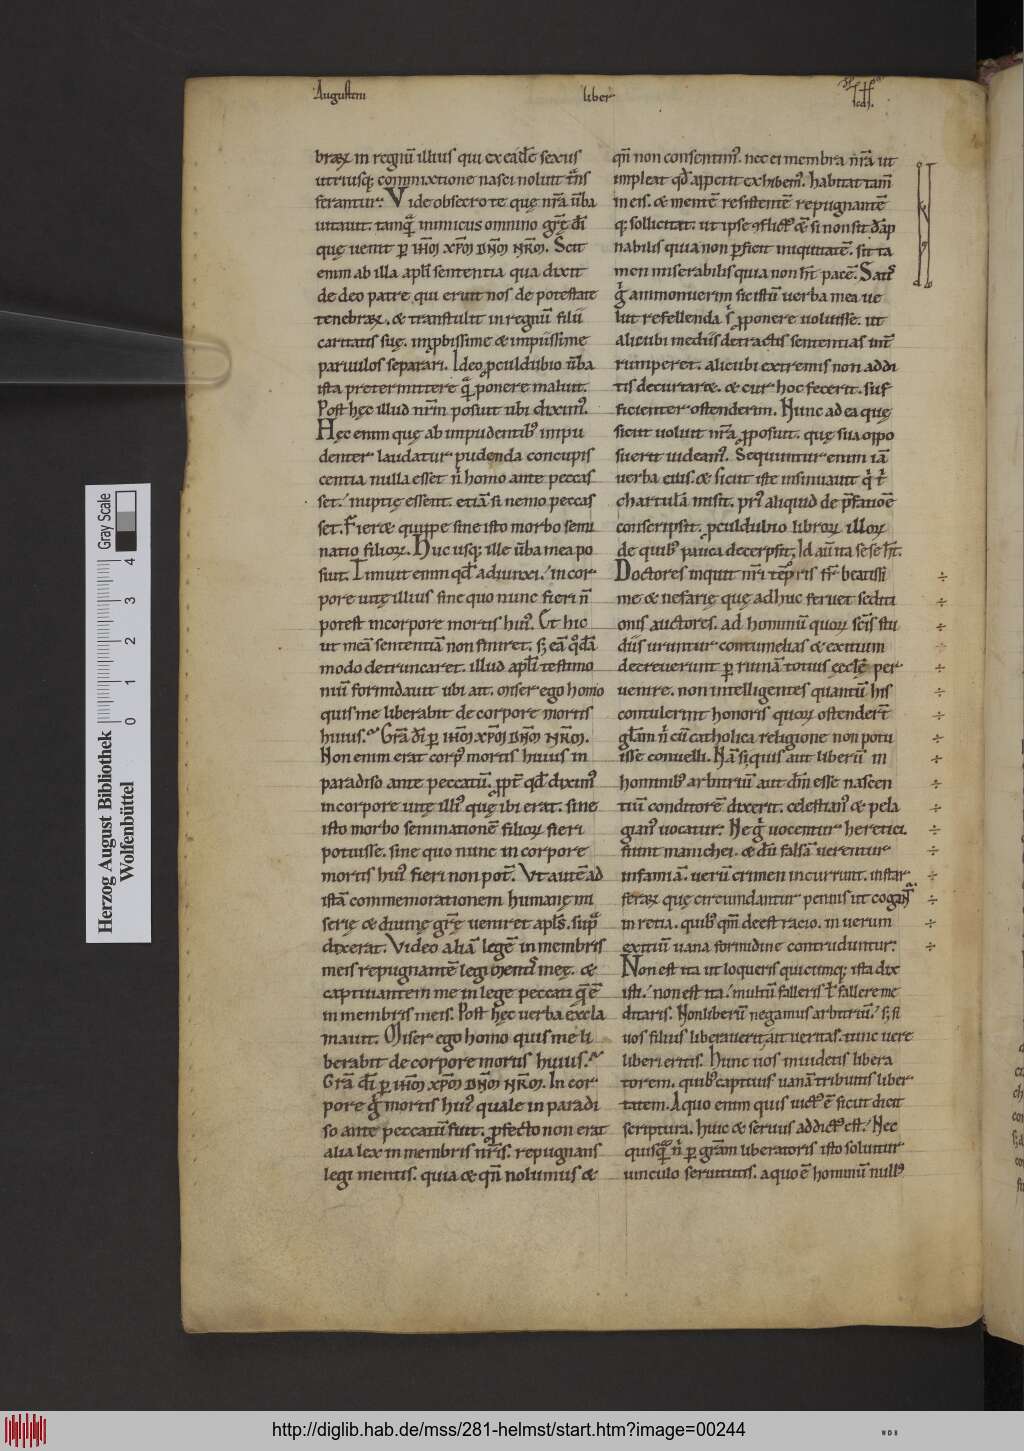 Augustini liber
braꝝ in regnū illius qui ex eadē sexus
utriusq; commixtione nasci noluit tn̄s
ferantur. Vide obsecro te quę nr̄a ūba
uitauit. tamquā inimicus omnino grę̄ dī
quę uenit ꝑ ihm xpm dnm nrm. Scit
enim ab illa apl̄i sententia qua dixit
de deo patre qui eruit nos de potestate
tenebraꝝ. & transtulit in regnū filii
caritatis suę. inꝓbissime & impiissime
paruulos separari. Ideo ꝓculdubio ūba
ista pretermittere quā ponere maluit.
Post hęc illud nr̄m posuit ubi diximꝰ.
Hęc enim quę ab impudentibꝰ impu
denter laudatur pudenda concupis
centia nulla esset nisi homo ante peccas
set. nuptię essent. etiā si nemo peccas
set. Fieret quippe sine isto morbo semi
natio filioꝝ. Huc usq; ille ūba mea po
suit. Timuit enim qd̄ adiunxi. in cor
pore uitę illius sine quo nunc fieri ñ
potest in corpore mortis huiꝰ. Et hic
ut meā sententiā non finiret. s; eā quodā
modo detruncaret. illud apl̄i testimo
niū formidauit ubi ait. Miser ego homo
quis me liberabit de corpore mortis
huius. Gr̄a dī ꝑ ihm xpm dnm nrm.
Non enim erat corpꝰ mortis huius in
paradiso ante peccatū. ꝓpt̄ qd̄ diximꝰ
in corpore uitę illiꝰ quę ibi erat. sine
isto morbo seminationē filioꝝ fieri
potuisse. sine quo nunc in corpore
mortis huiꝰ fieri non pot̄. Vt autē ad
istā commemorationem humanę mi
serię & diuinę grę̄ ueniret apl̄s. supra
dixerat. Video aliā legē in membris
meis repugnantē legi mentis meę. &
captiuantem me in lege peccati quę ē
in membris meis. Post hęc uerba excla
mauit. Miser ego homo quis me li
berabit de corpore mortis huius.
Gr̄a dī ꝑ ihm xpm dnm nrm. In cor
pore g̊ mortis huiꝰ quale in paradi
so ante peccatū fuit. ꝓfecto non erat
alia lex in membris nr̄is. repugnans
legi mentis. quia & qn̄ nolumus &
qn̄ non consentimꝰ. nec ei membra nr̄a ut
impleat qd̄ appetit exhibemꝰ. habitat tam̄
in eis. & mentē resistentē repugnantē
q; sollicitat. ut ipse conflictꝰ & si non sit dāp
nabilis quia non ꝑficit iniquitatē. sit ta
men miserabilis quia non ht̄ pacē. Satis
g̊ ammonuerim sic istū uerba mea ue
lut refellenda sibi ꝓponere uoluisse. ut
alicubi mediis detractis sententias int̄
rumperet. alicubi extremis non addi
tis decurtaret. & cur hoc fecerit. suf
ficienter ostenderim. Nunc ad ea quę
sicut uoluit nr̄a ꝓposuit. quę sua oppo
suerit uideamꝰ. Sequuntur enim iā
uerba eius. & sicut iste insinuauit qui t
chartulā misit. priꝰ aliquid de p̄fatioē
conscripsit. ꝓculdubio libroꝝ illoꝝ
de quibꝰ pauca decerpsit. Id aū ita sese ht̄.
Doctores inquit nr̄i temporis fr̄ beatissi
me & nefarię quę adhuc feruet sediti
onis auctores. ad hominū quoꝝ sc̄is stu
diis uruntur contumelias & exitium
decreuerunt ꝑ ruinā totius ęcclę ꝑ
uenire. non intelligentes quantū his
contulerint honoris quoꝝ ostendert̄
glam̄ nisi cū catholica religione non potu
isse conuelli. Nā si quis aut liberū in
hominibꝰ arbitriū aut dm̄ esse nascen
tiū conditorē dixerit. celestianꝰ & pela
gianꝰ uocatur. Ne g̊ uocentur heretici.
fiunt manichei. & dū falsā uerentur
infamiā. uerū crimen incurrunt. instar
feraꝝ quę circumdantur pennis ut cogant̃
in retia. quibꝰ qm̄ deest racio. in uerum
exitiū uana formidine contruduntur.
Non est ita ut loqueris quicumq; ista dix
isti. non est ita. multū falleris t̄ fallere me
ditaris. Non liberū negamus arbitriū. s; si
uos filius liberauerit ait ueritas. tunc uere
liberi eritis. Hunc uos inuidetis libera
torem. quibꝰ captiuis uanā tribuitis liber
tatem. A quo enim quis uictꝰ ē sicut dicit
scriptura. huic & seruus addictꝰ est. Nec
quisquā nisi ꝑ grām liberatoris isto soluitur
uinculo seruitutis. a quo ē hominū nullꝰ
Gray Scale
0 1 2 3 4
Herzog August Bibliothek
Wolfenbüttel
http://diglib.hab.de/mss/281-helmst/start.htm?image=00244